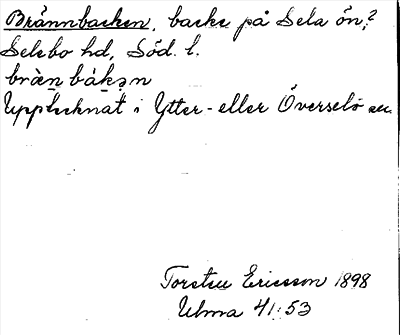 Brännbacken, backe på Sela ön,?
Selebo hd, Söd. l.
brän båkən
Upptecknat i Ytter- eller Överselö sn.
Torsten Ericsson 1898
Ulma 41:53